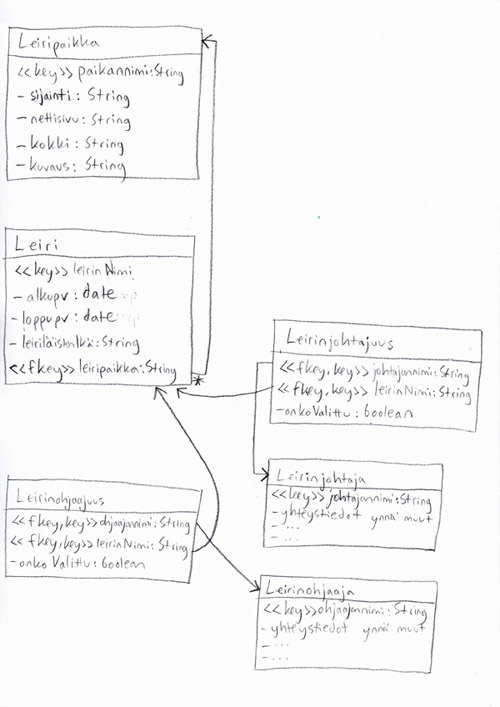 Leiripaikka
<<key>> paikannimi:String
- sijainti : String
- nettisivu : String
- kokki : String
- kuvaus : String
Leiri
<<key>> leirinNimi
- alkupv : date
- loppupv : date
- leiriläistenlkä : String
<<fkey>> leiripaikka:String
*
Leirinjohtajuus
<<fkey, key>> johtajannimi:String
<<fkey, key>> leirinNimi:String
- onkoValittu : boolean
Leirinjohtaja
<<key>> johtajannimi:String
- yhteystiedot ynnä muut
- ...
- ...
Leirinohjaajuus
<<fkey, key>> ohjaajannimi:String
<<fkey, key>> leirinNimi:String
- onkoValittu : boolean
Leirinohjaaja
<<key>> ohjaajannimi : String
- yhteystiedot ynnä muut
- ...
- ...